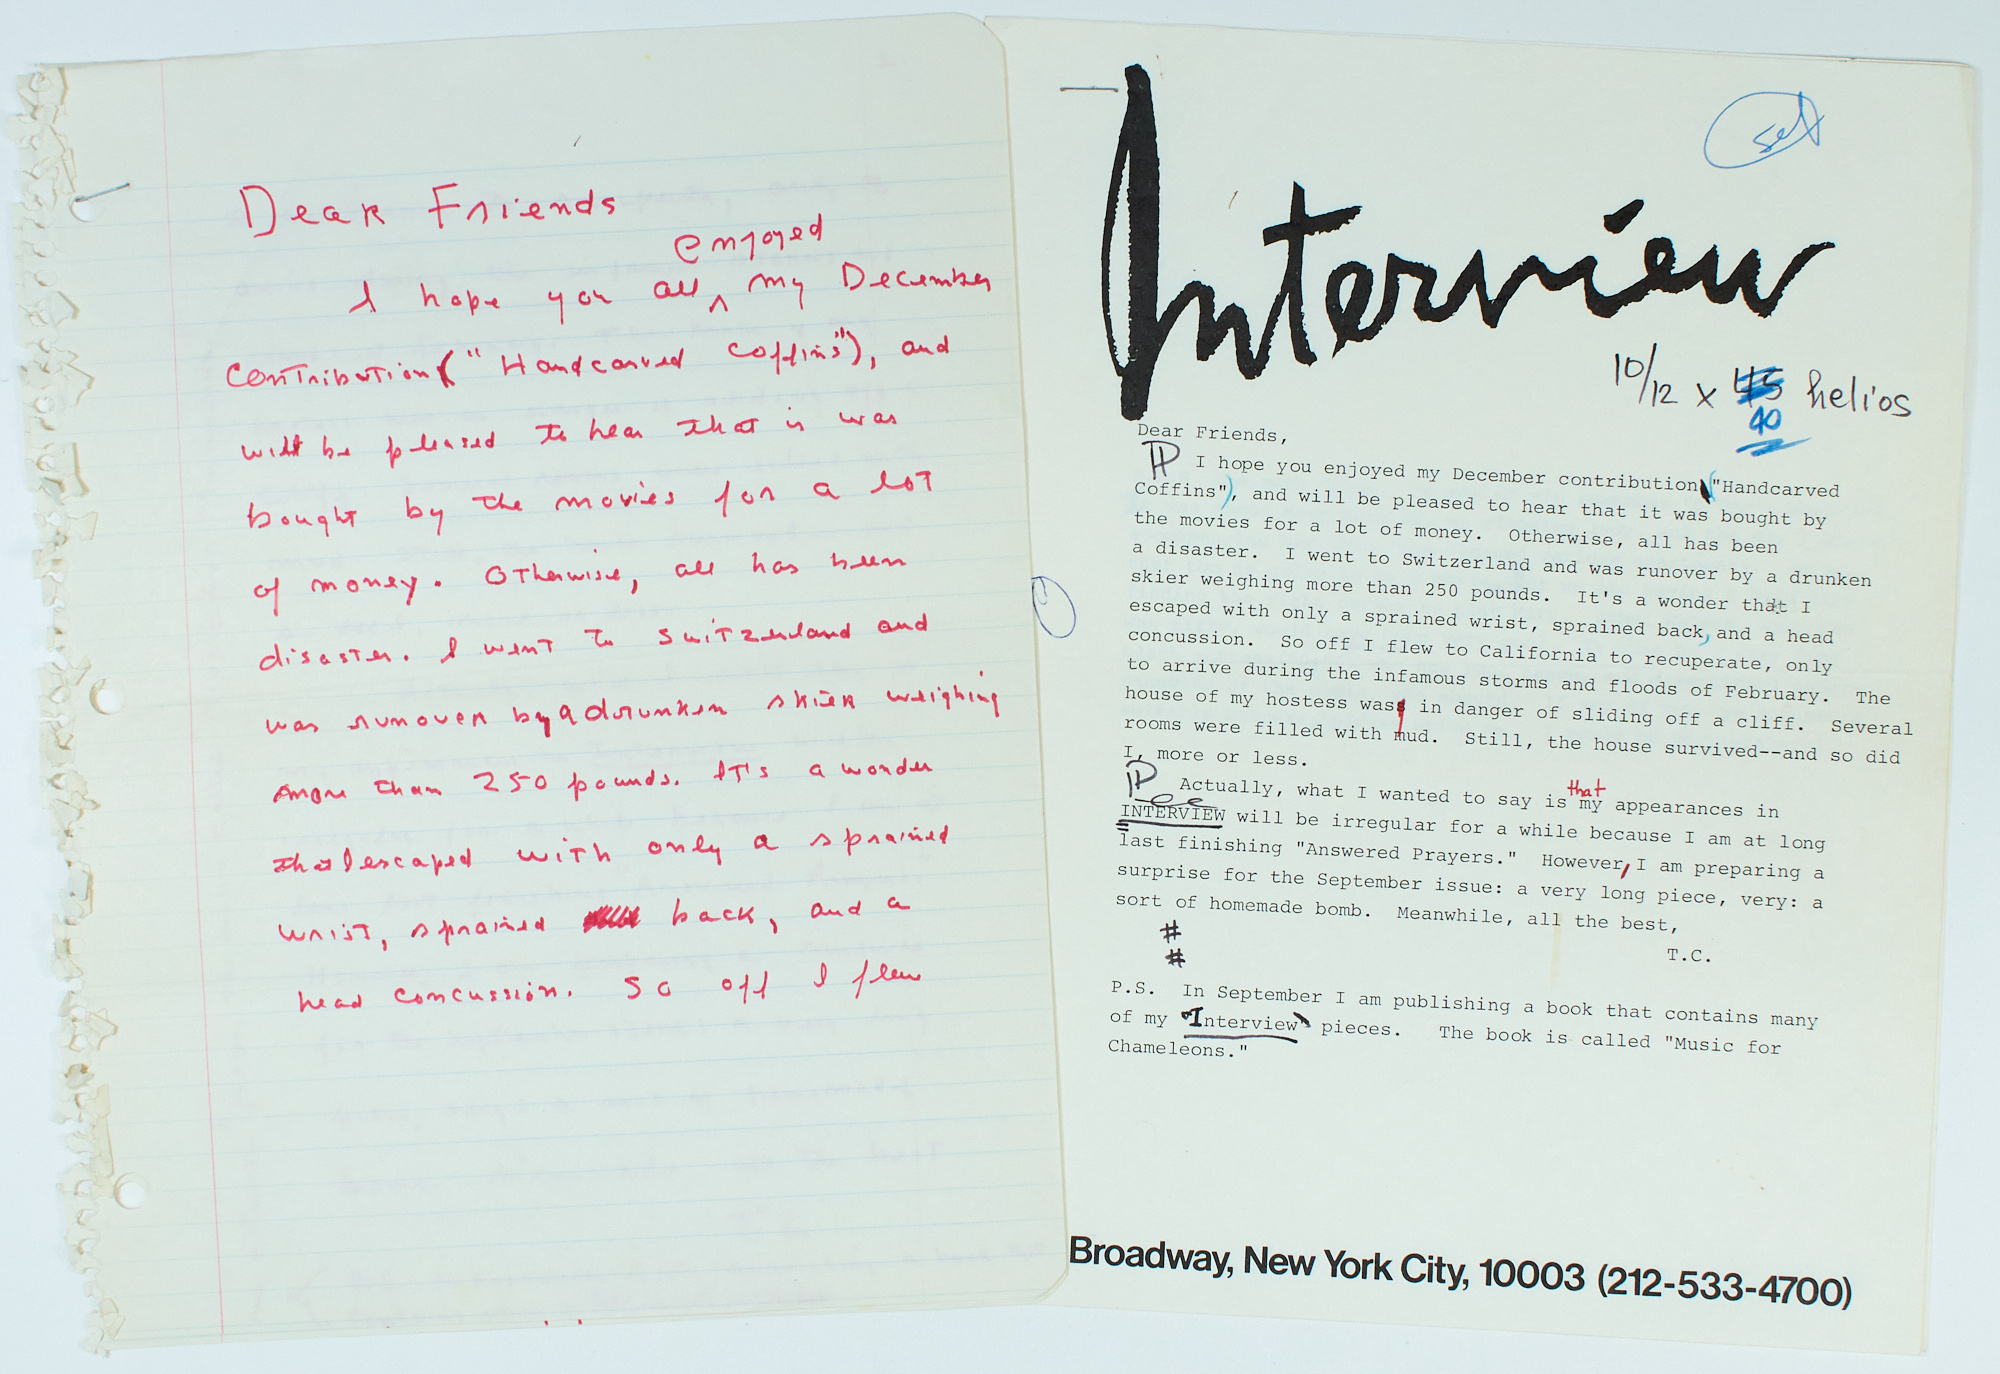 Dear Friends
enjoyed
I hope you all ^ my December
contribution ("Handcarved Coffins"), and
will be pleased to hear that is was
bought by the movies for a lot
of money. Otherwise, all has been
disaster. I went to Switzerland and
was runover by a drunken skier weighing
more than 250 pounds. It's a wonder
that I escaped with only a sprained
wrist, sprained back, and a
head concussion. So off I flew
set
Interview
10/12 x 45 helios
40
Dear Friends,
I hope you enjoyed my December contribution ("Handcarved
Coffins"), and will be pleased to hear that it was bought by
the movies for a lot of money. Otherwise, all has been
a disaster. I went to Switzerland and was runover by a drunken
skier weighing more than 250 pounds. It's a wonder that I
escaped with only a sprained wrist, sprained back, and a head
concussion. So off I flew to California to recuperate, only
to arrive during the infamous storms and floods of February. The
house of my hostess was in danger of sliding off a cliff. Several
rooms were filled with mud. Still, the house survived--and so did
I, more or less.
that
Actually, what I wanted to say is my appearances in
INTERVIEW will be irregular for a while because I am at long
last finishing "Answered Prayers." However, I am preparing a
surprise for the September issue: a very long piece, very: a
sort of homemade bomb. Meanwhile, all the best,
#
# T.C.
P.S. In September I am publishing a book that contains many
of my "Interview" pieces. The book is called "Music for
Chameleons."
Broadway, New York City, 10003 (212-533-4700)